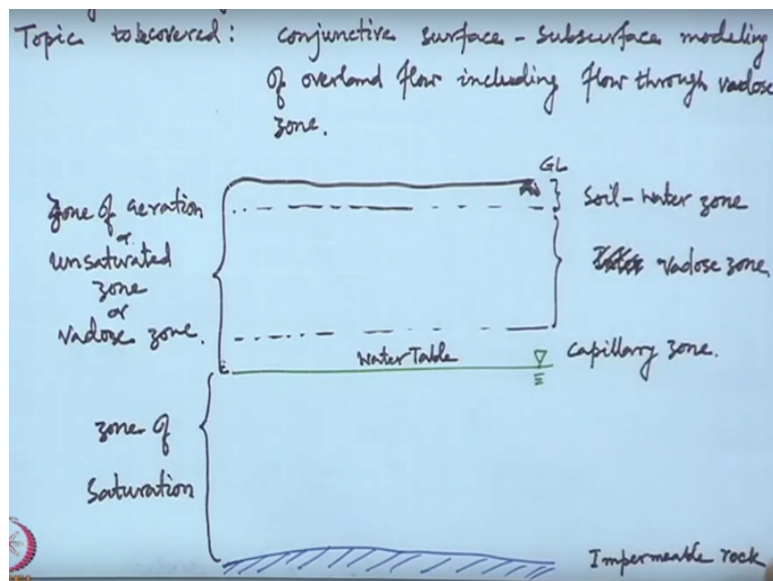 Topic to be covered: conjunctive surface - subsurface modeling
of overland flow including flow through vadose
zone.
GL
Zone of aeration
or
unsaturated
zone
or
Vadose zone.
Soil-water zone
vadose zone
Water Table
Capillary zone.
zone of
Saturation
Impermeable rock